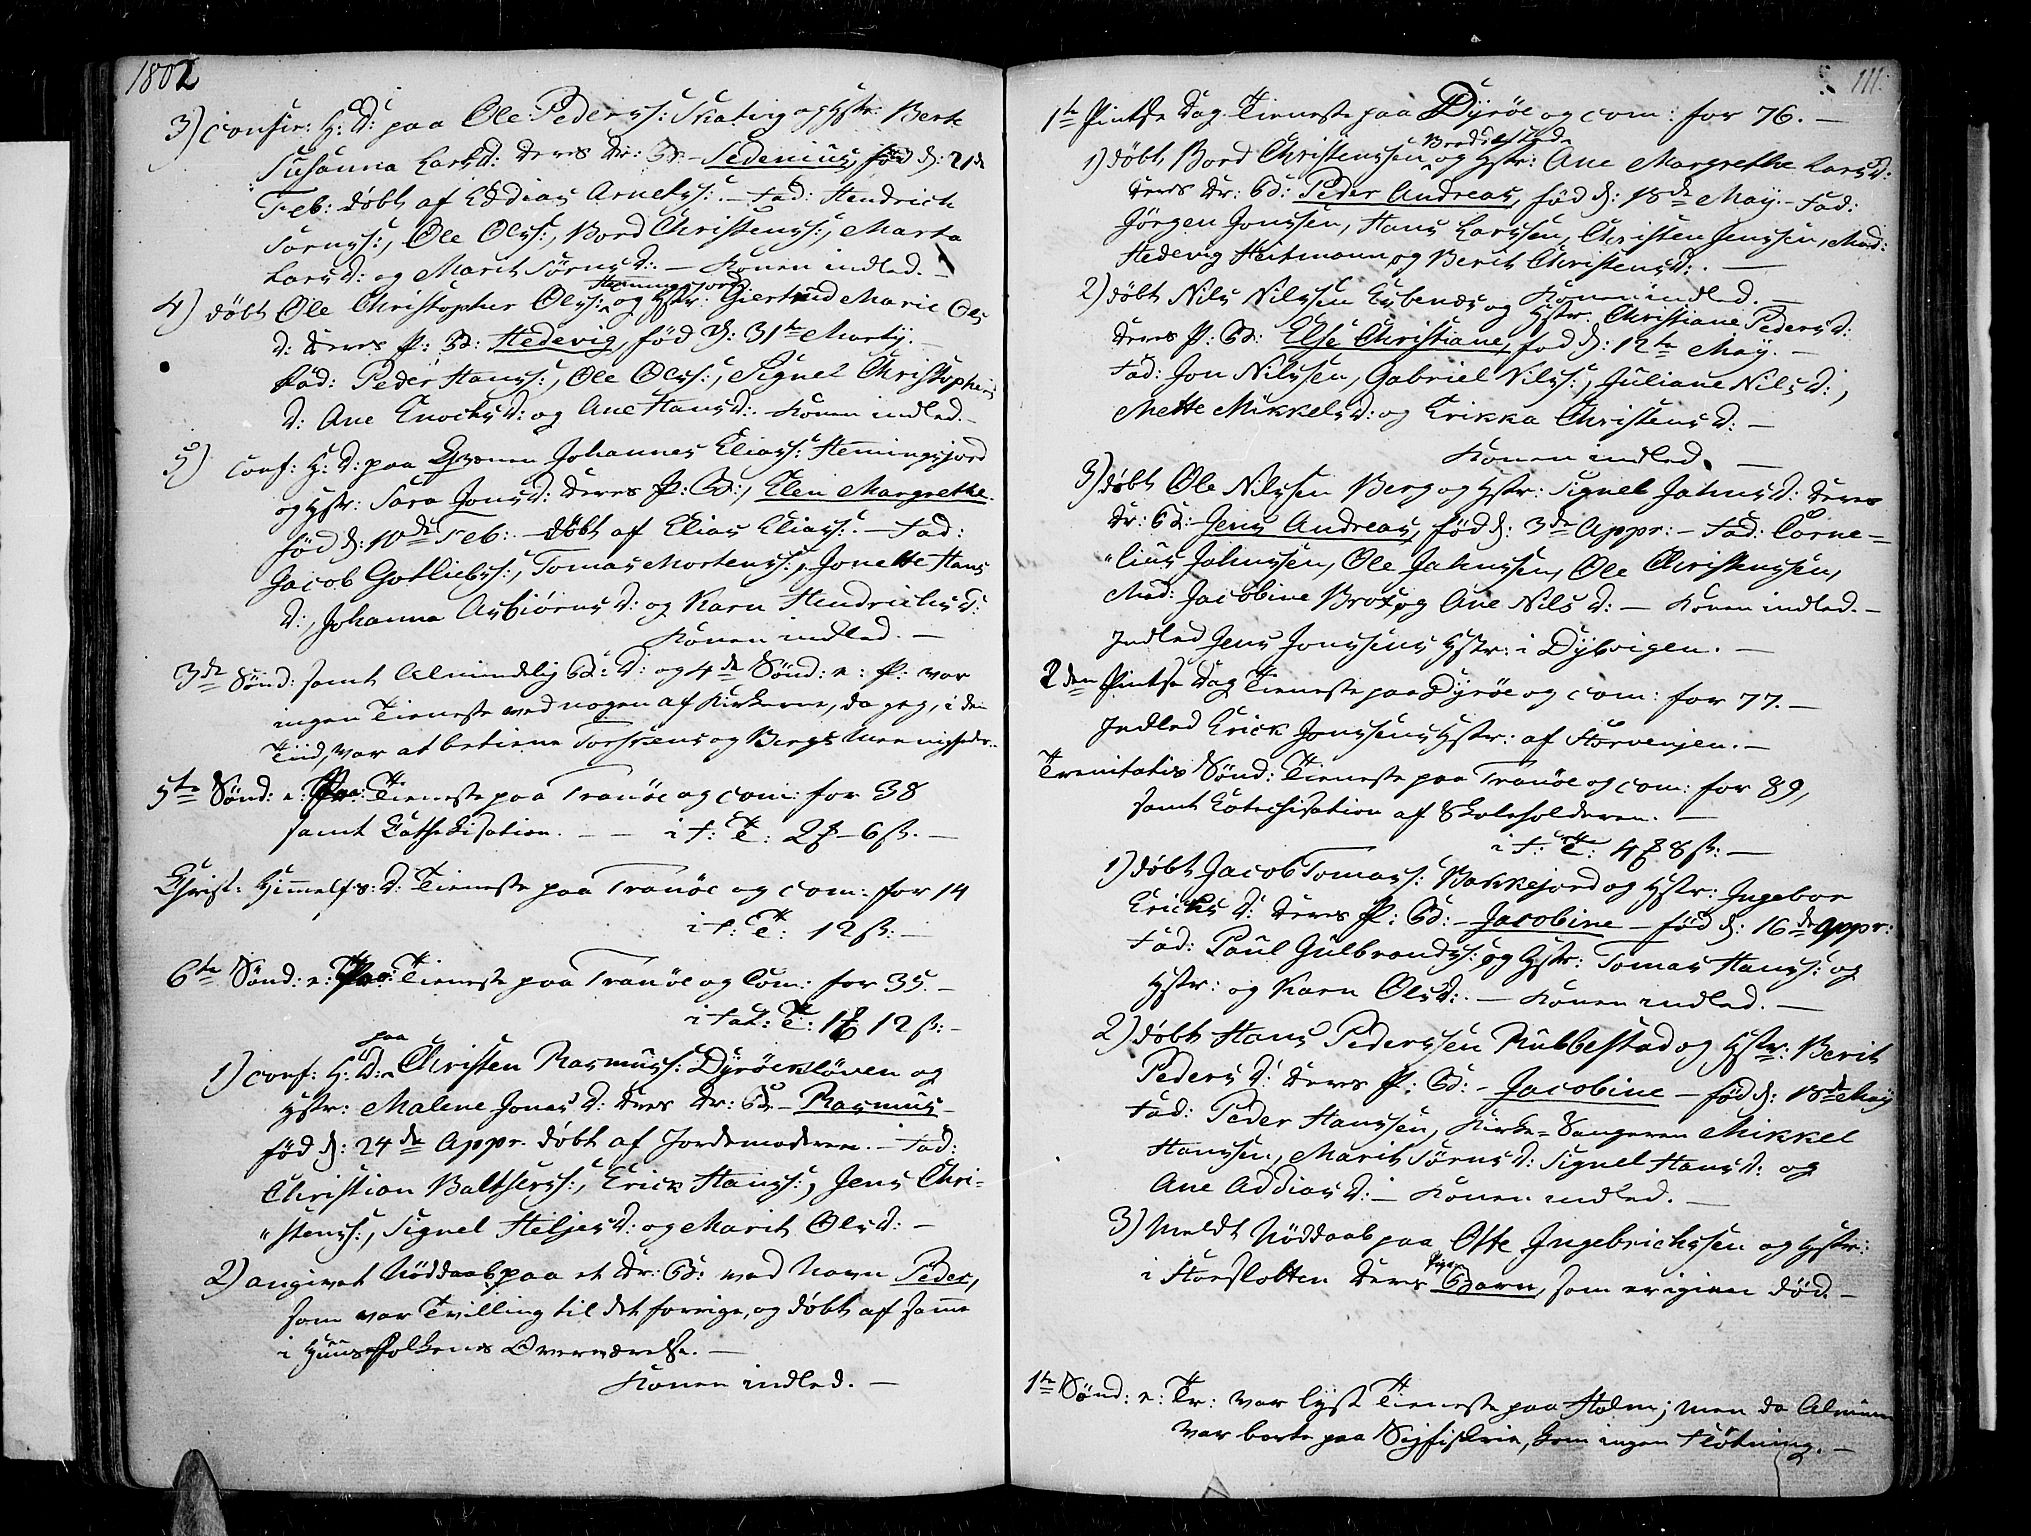 1802
3) Confir: H: D: paa Ole Peders: Skatvig og Hstr: Berte
Susanna Larsd: deres Dr: B: Sedenius, fød d: 21de
Feb: døbt af Eddias Arnets: — Fad: Hendrich
Sørns:, Ole Ols:, Bord Christens:, Marta
Larsd: og Marit Sørnsd: — Konen indled. —
4) døbt Ole Christopher Ols: Hemmingsjord og Hstr: Giertrud Marie Ols
d: deres P: B: Hedevig, fød d: 31te Martij. —
Fad: Peder Hans:, Ole Ols:, Signel Christophers
d: Ane Enochsd: og Ane Hansd: — Konen indled. —
5) Conf: H: D: paa Johannes Elias: Hemingsjord
og Hstr: Sara Jonsd: deres P: B:, Elen Margrethe
fød d: 10de Feb: — døbt af Elias Elias: — Fad:
Jacob Gotliebs:, Tomas Mortens:, Jonette Hans
d:, Johanna Asbiørnsd: og Karn Hendrichsd:
Konen indled. —
3de Sønd: samt Almindelig B: D: og 4de Sønd: e: P: var
ingen Tieneste ved nogen af Kirkerne, da jeg, i den
Tiid, var at betiene Torskens og Bergs Meenigheder.
5te Sønd: e: Paa: Tieneste paa Tranöe og com: for 38
samt Cathekisation. — — i t: T: 2 — 6 ß. —
Christ: Himmelfs: D: Tieneste paa Tranöe og com: for 14
i t: T: 12 ß: —
6te Sønd: e: Paa: Tieneste paa Tranöe og Com: for 35. —
i tat: T: 1 12 ß: —
1) Conf: H: D: paa Christen Rasmus: Dyröekløven og
Hstr: Malene Jonasd: deres Dr: B: — Rasmus —
fød d: 24de Appr. døbt af Jordemoderen. — Fad:
Christian Baltsers:, Erick Hans:, Jens Chri-
"stens:, Signel Heljesd: og Marit Olsd: —
2) angivet Nøddaab paa et Dr: B: ved Navn Peder,
som var Tvilling til det forrige, og døbt af samme
i Huus-Folkenes Overværelse. —
Konen indled. —
111.
1te Pintse Dag Tieneste paa Dyröe og com: for 76. —
1) døbt Bord Christenssen og Hstr: Ane Margrethe Larsd:
deres Dr: B: Peder Andreas, fød d: 18de May. — Fad:
Jörgen Jonssen, Hans Larssen, Christen Jenssen, Mad:
Hedevig Heitmann og Berit Christensd: —
Konen indled. —
2) døbt Nils Nilssen Espenæs og Hstr. Christiane Pedersd:
deres P: B: Else Christiane, fød d: 12te May. —
Fad: Jon Nilssen, Gabriel Nils:, Juliane Nilsd:,
Mette Mikkelsd: og Erikka Christensd: —
Konen indled. —
3) døbt Ole Nilssen Berg og Hstr: Signel Jahnsd: deres
Dr: B: Jens Andreas, fød d: 3de Appr: — Fad: Corne=
"lius Jahnssen, Ole Jahnssen, Ole Christenssen,
Mad: Jacobine Brox, og Ane Nilsd: — Konen indled. —
Indled Jens Jonssens Hstr: i Dybvigen. —
2den Pintse Dag Tieneste paa Dyröe og com: for 77. —
Indled Erick Jonssens Hstr: af Storvenjen. —
Trenitatis Sönd: Tieneste paa Tranöe og com: for 89,
samt Catechisation af Skoleholderen. —
i t: T: 4 8 ß: —
1) døbt Jacob Tomas: Bakkejord og Hstr: Ingebor
Erichsd: deres P: B: — Jacobine — fød d: 16de Appr:
Fad: Paul Gulbrands: og Hstr: Tomas Hans: og
Hstr: og Karn Olsd: — Konen indled. —
2) døbt Hans Pederssen Rubbestad og Hstr: Berit
Pedersd: deres P: B: — Jacobine — fød d: 18de May
Fad: Peder Hanssen, Kirke-Sangeren Mikkel
Hanssen, Marit Sørnsd: Signel Hansd: og
Ane Addiasd: — Konen indled. —
3) Meldt Nøddaab paa Offe Ingebrichssen og Hstr:
i Storslotten deres Pige Barn, som er igien død. —
1te Sønd: e: Tr: var lyst Tieneste paa Holm; men da Almuen
var borte paa Sejfiskrie, kom ingen Flötning. —